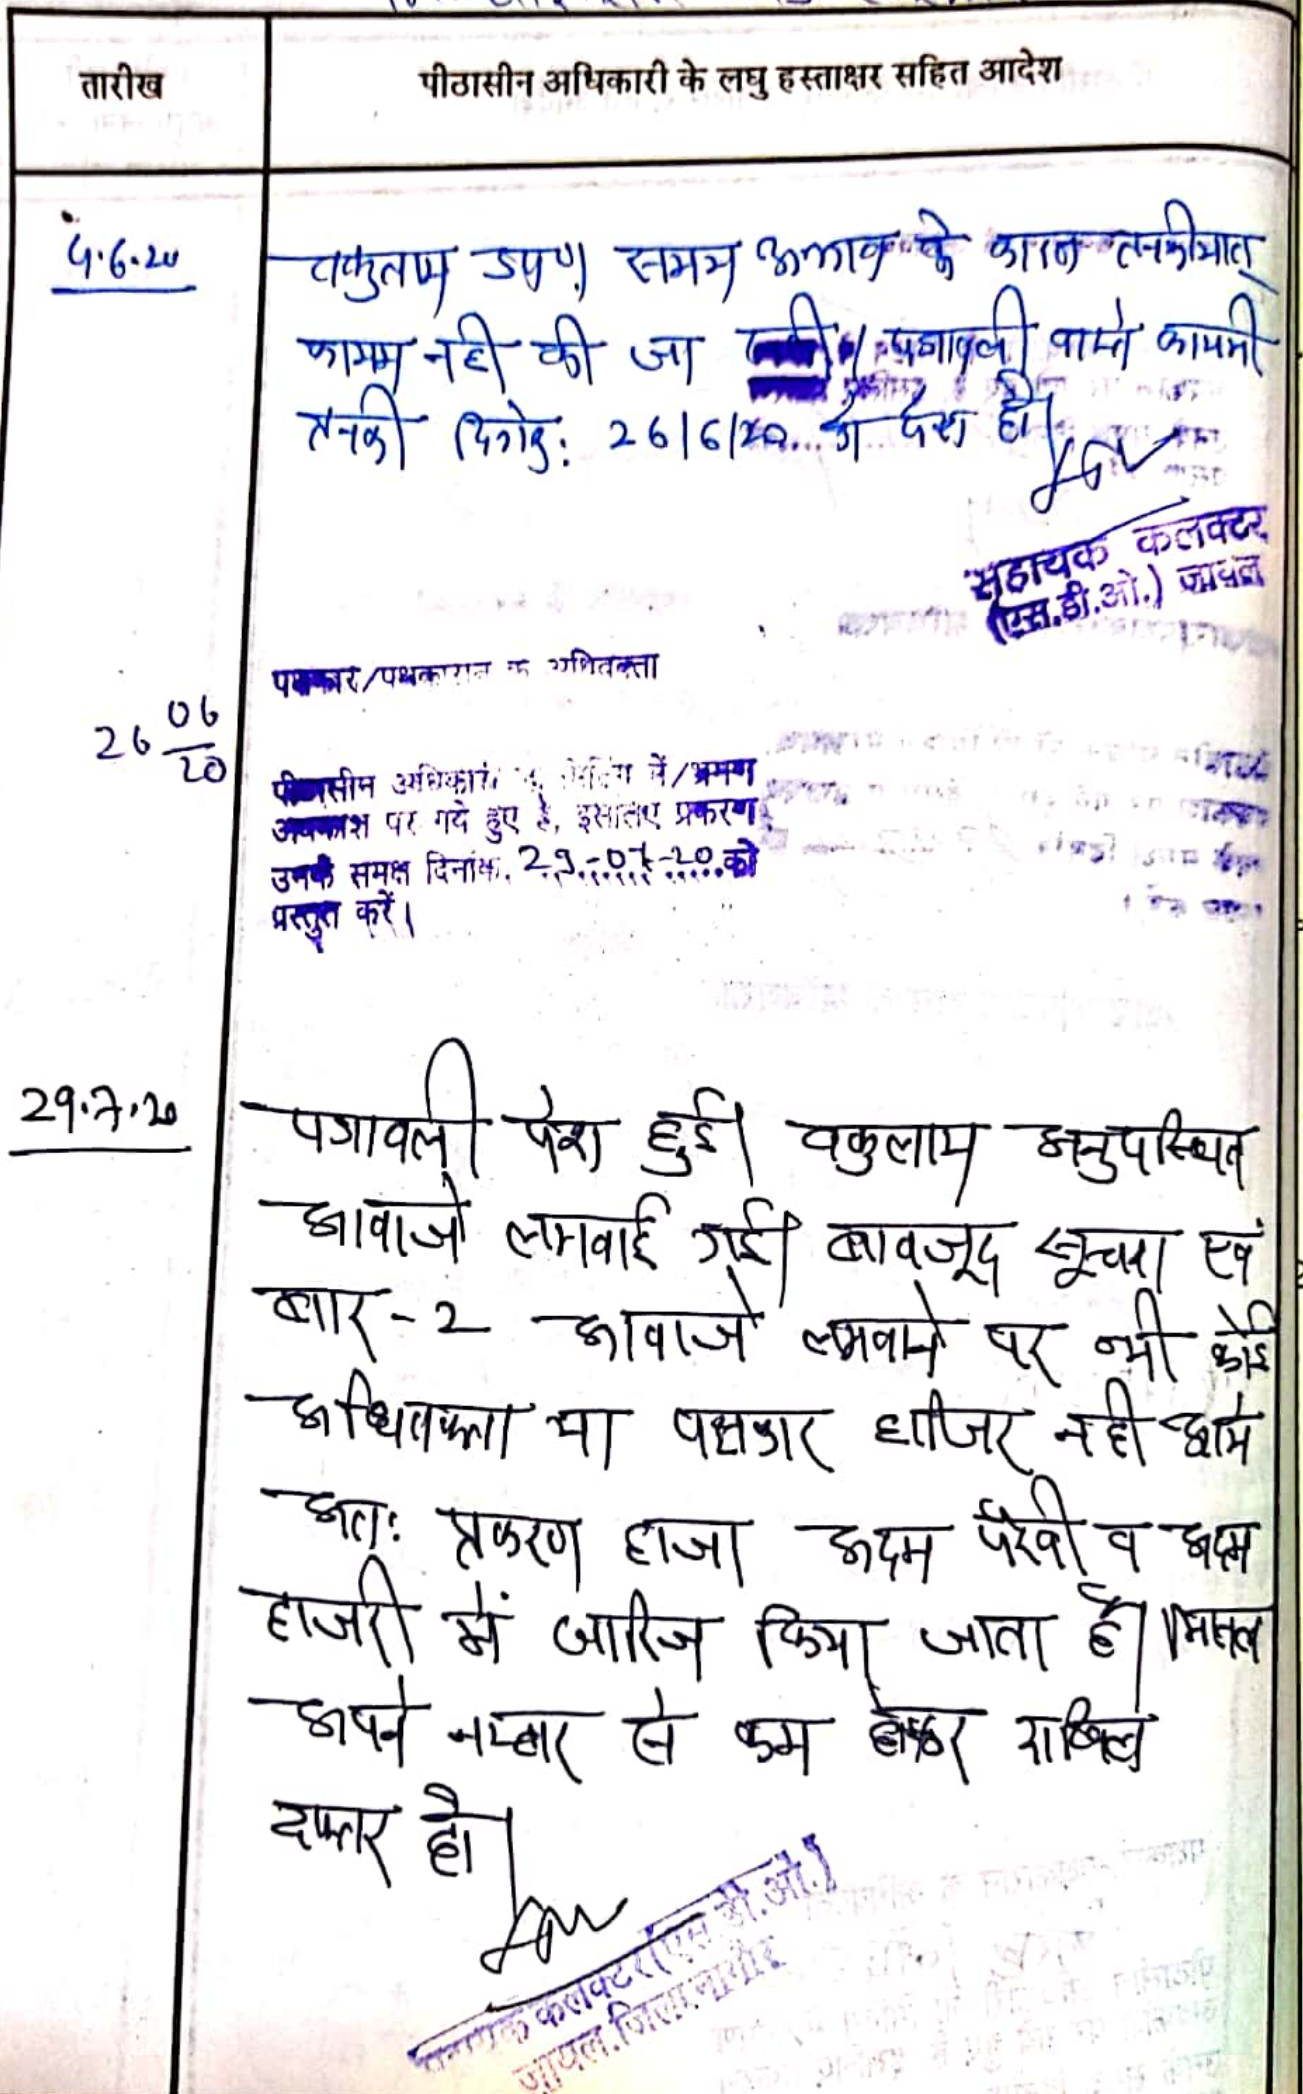 तारीख
पीठासीन अधिकारी के लघु हस्ताक्षर सहित आदेश
वकुलाय उपo समय अभाव के कारण तनकीयात्
कायम नही की जा सकी। पत्रावली वास्ते कायमी
तनकी दिनांक: 26/6/20 को पेश हो।
सहायक कलक्टर
(एस.डी.ओ.) जायल
पक्षकार/पक्षकारान के अधिवक्ता
26 06/20
पीठासीन अधिकारी मीटिंग में/भ्रमण
अवकाश पर गये हुए है, इसलिए प्रकरण
उनके समक्ष दिनांक. 29-07-20 को
प्रस्तुत करें।
29.7.20
पत्रावली पेश हुई। वकुलाय अनुपस्थित
आवाजे लगवाई गई। बावजूद सूचना एवं
बार-2 आवाजे लगवाने पर भी कोई
अधिवक्ता या पक्षकार हाजिर नही आये
अत: प्रकरण हाजा अदम पैरवी व अदम
हाजरी में खारिज किया जाता है। मिसल
अपने नम्बर से कम होकर दाखिल
दफ्तर हो।
सहायक कलक्टर (एस.डी.ओ.)
जायल, जिला नागौर